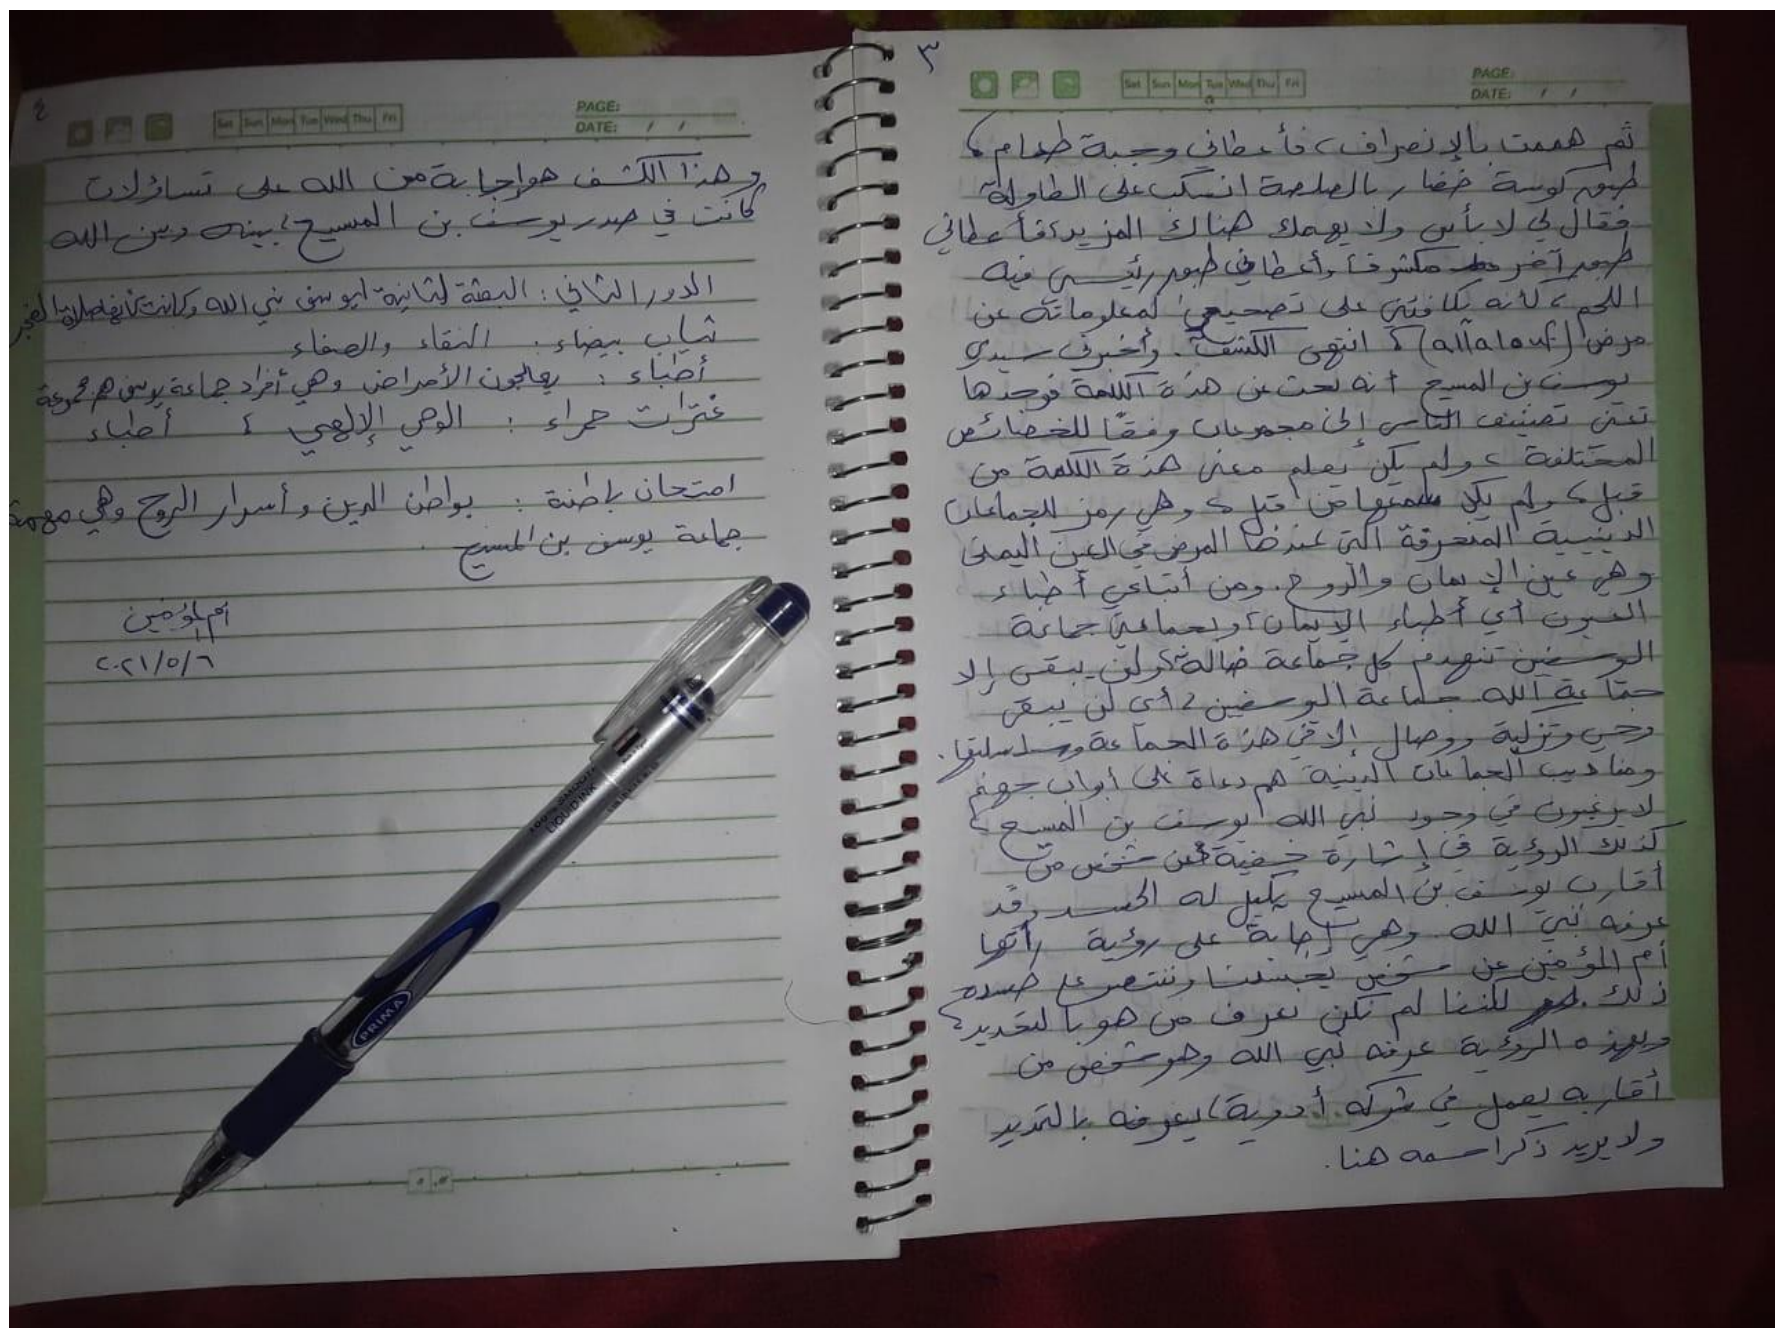 ٣
Sat Sun Mon Tue Wed Thu Fri
PAGE:
DATE: / /
ثم هممت بالإنصراف، فأعطاني وجبة طعام،
طبق كوسة خضار بالصلصة انسكب على الطاولة
فقال لي لا بأس ولا يهمك هناك المزيد، فأعطاني
طبق آخر مكشوف، وأعطاني طبق رئيسي فيه
اللحم، لأنه يكافئني على تصحيحي لمعلوماته عن
مرض (allalouf)، انتهى الكشف. وأخبرني سيدي
يوسف بن المسيح أنه بحث عن هذه الكلمة فوجدها
تعني تصنيف الناس إلى مجموعات وفقًا للخصائص
المختلفة، ولم يكن يعلم معنى هذه الكلمة من
قبل، ولم يكن سمعها من قبل، وهي رمز للجماعات
الدينية المنحرفة التي عندها المرض في العين اليمنى
وهي عين الإيمان والروح. ومن أتباعي أطباء
العيون أي أطباء الإيمان، وبجماعتي جماعة
اليوسفيين تنهدم كل جماعة ضالة، ولن يبقى إلا
جماعة الله جماعة اليوسفيين، أي لن يبقى
وحي وتزكية ووصال إلا في هذه الجماعة وسلسلتها.
ومناديب الجماعات الدينية هم دعاة على أبواب جهنم
لا يرغبون في وجود نبي الله يوسف بن المسيح،
كذلك الرؤية في إشارة خفية عن شخص من
أقارب يوسف بن المسيح يكيل له الحسد وقد
عرفه نبي الله وهي إجابة على رؤية رأتها
أم المؤمنين عن شخص يحسدنا وننتصر على حسده
ذلك. لكننا لم نكن نعرف من هو بالتحديد،
وبهذه الرؤية عرفه نبي الله وهو شخص من
أقاربه يعمل في شركة أدوية، يعرفه بالتحديد
ولا يريد ذكر اسمه هنا.
٤
Sat Sun Mon Tue Wed Thu Fri
PAGE:
DATE: / /
وهذا الكشف هو إجابة من الله على تساؤلات
كانت في صدر يوسف بن المسيح، بينه وبين الله
الدور الثاني: البعثة الثانية ليوسف نبي الله وكانت صلاة الفجر
ثياب بيضاء: النقاء والصفاء
أطباء: يعالجون الأمراض وهي أفراد جماعة يوسف هم مجموعة
غترات حمراء: الوحي الإلهي، أطباء
امتحان باطنة: بواطن الدين وأسرار الروح وهي مهمة
جماعة يوسف بن المسيح.
أم المؤمنين
٢٠٢١/٥/٦
LIQUID INK
PRIMA